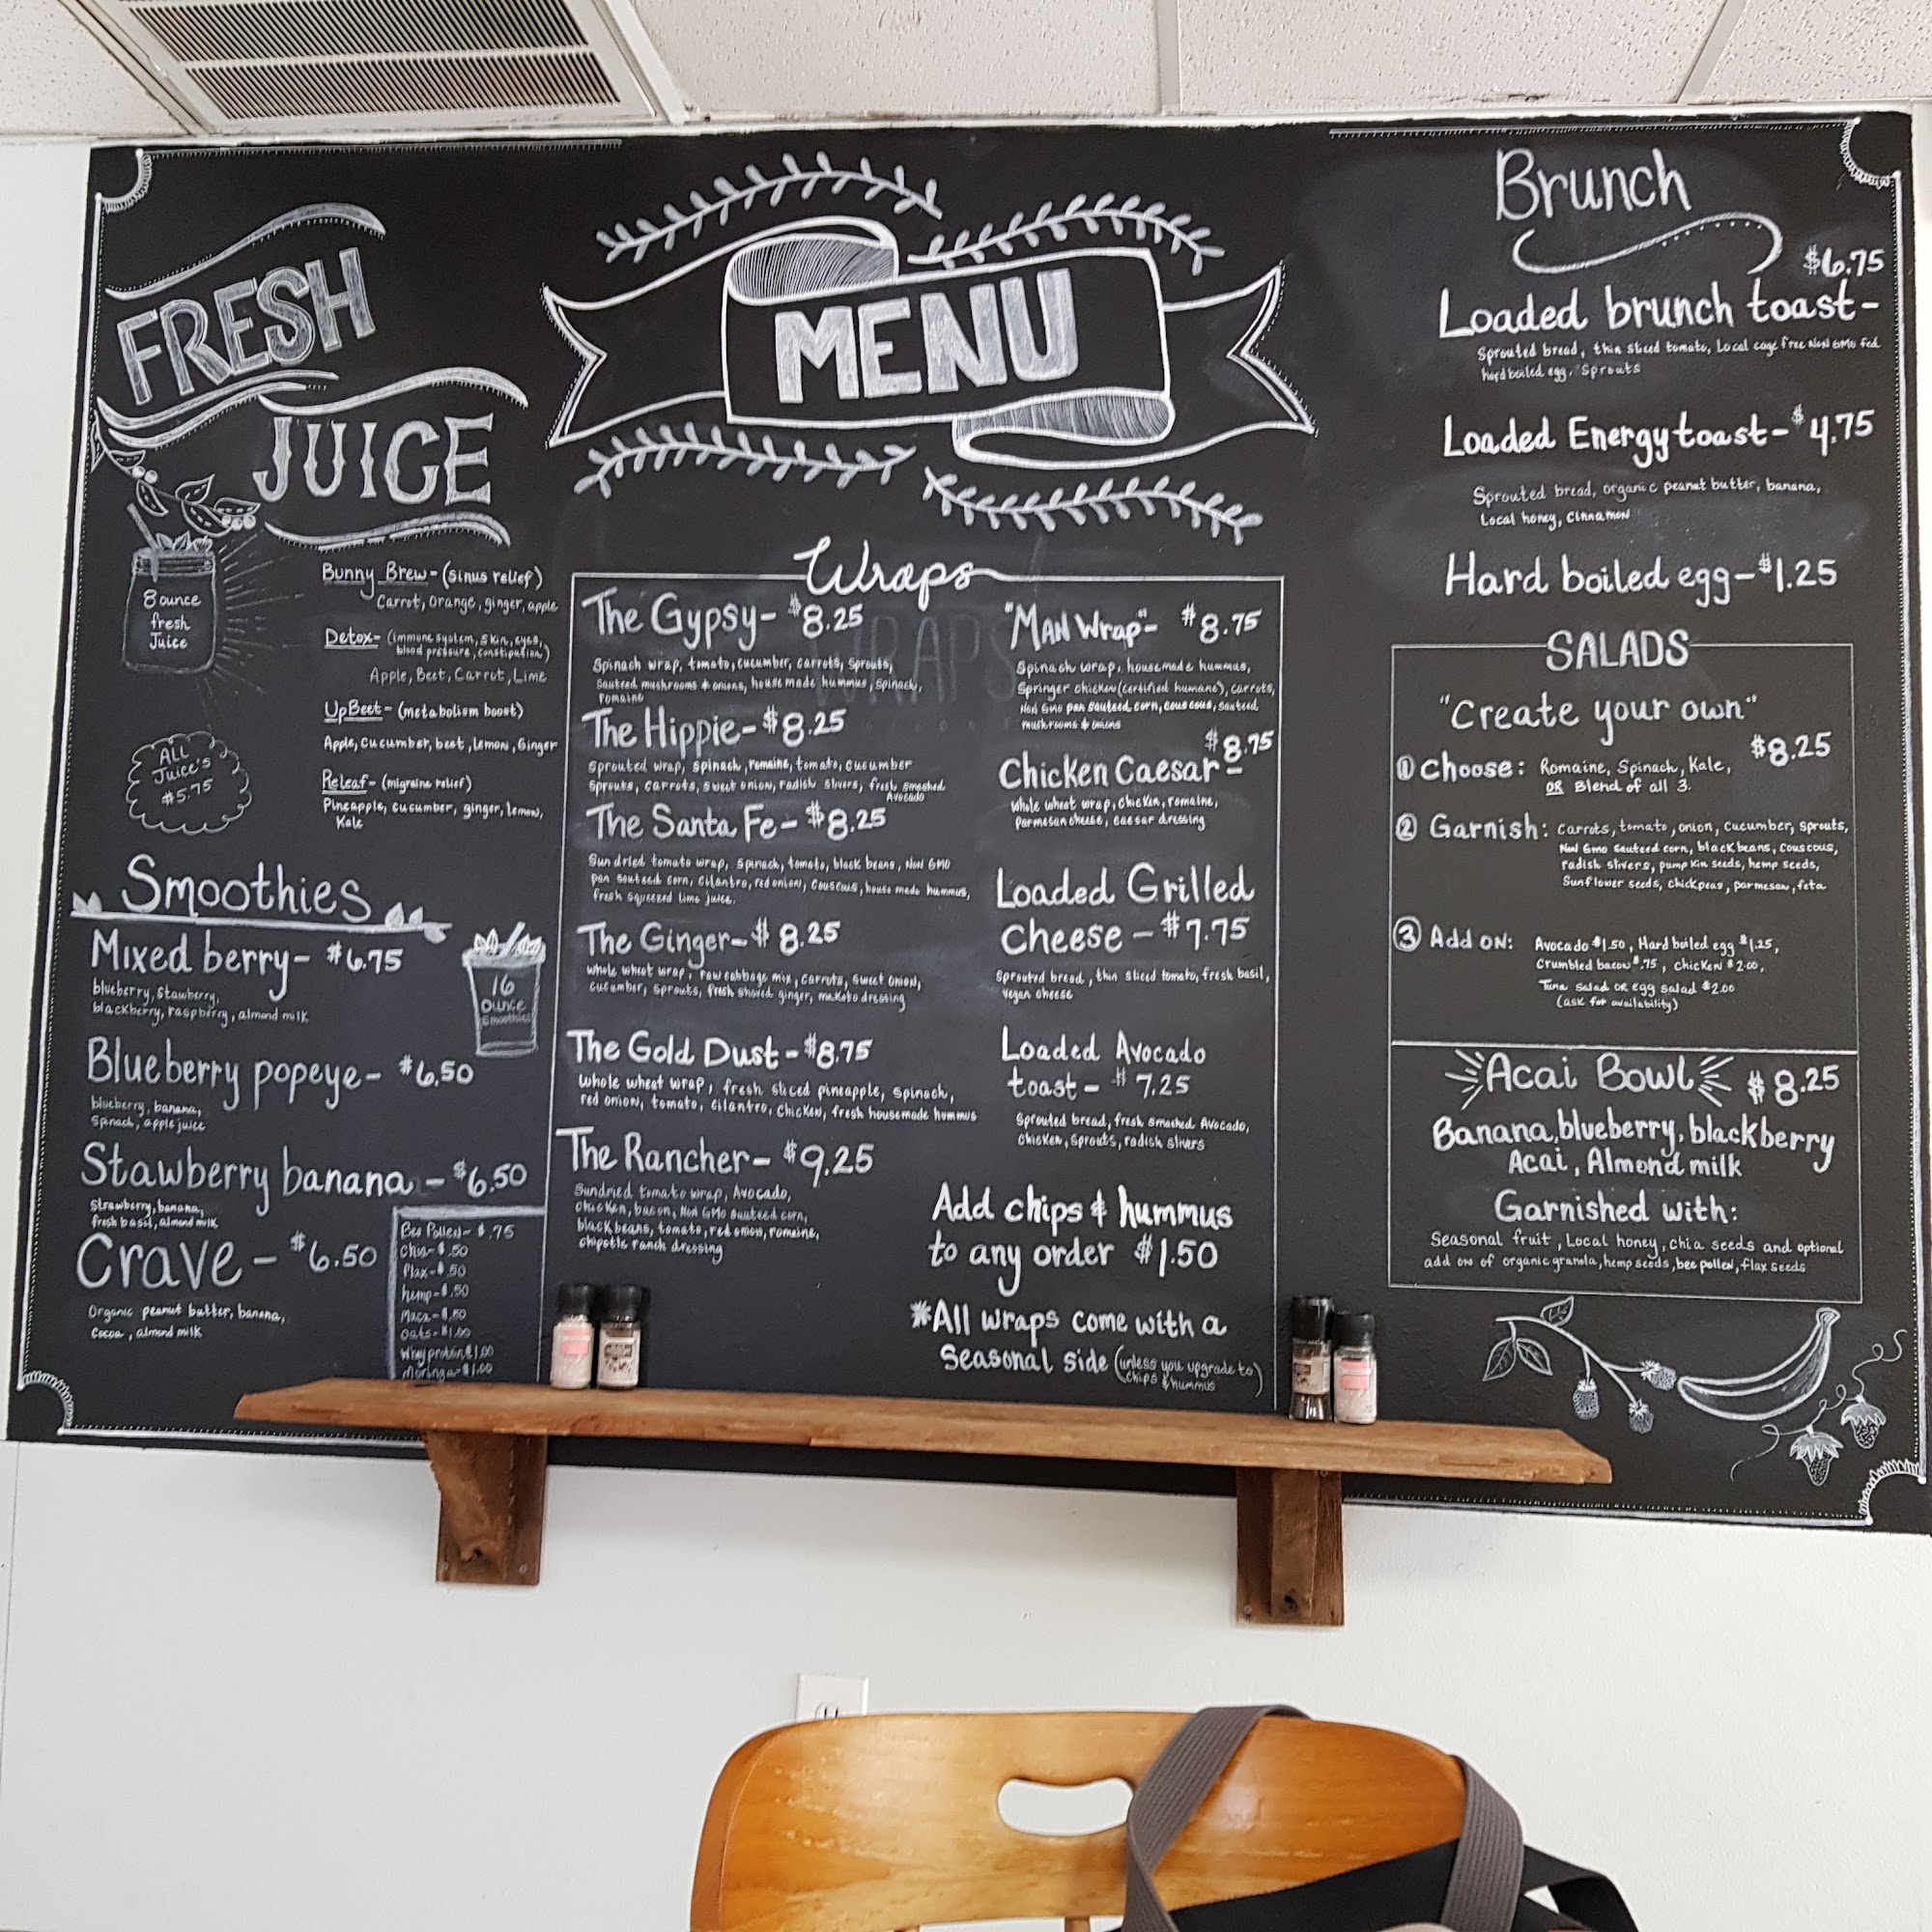 FRESH
JUICE
8 ounce
fresh
Juice
Bunny Brew- (sinus relief)
Carrot, orange, ginger, apple
Detox- (immune system, skin, eyes,
blood pressure, constipation)
Apple, Beet, Carrot, Lime
UpBeet- (metabolism boost)
Apple, cucumber, beet, lemon, Ginger
Releaf- (migraine relief)
Pineapple, cucumber, ginger, lemon,
Kale
ALL
Juice's
$5.75
Smoothies
16
ounce
Smoothies
Mixed berry- $6.75
blueberry, Stawberry,
blackberry, raspberry, almond milk
Blueberry popeye- $6.50
blueberry, banana,
Spinach, apple juice
Stawberry banana- $6.50
Strawberry, banana,
fresh basil, almond milk
Crave- $6.50
Organic peanut butter, banana,
Cocoa, almond milk
Bee Pollen- $.75
Chia- $.50
flax- $.50
hemp- $.50
Maca- $.50
Oats- $1.00
Whey protein $1.00
Moringa- $1.00
MENU
Wraps
WRAPS
The Gypsy- $8.25
Spinach wrap, tomato, cucumber, carrots, Sprouts,
Sauteed mushrooms & onions, house made hummus, Spinach,
romaine
The Hippie- $8.25
Sprouted wrap, spinach, romaine, tomato, cucumber
Sprouts, carrots, sweet onion, radish slivers, fresh smashed
Avocado
The Santa Fe- $8.25
Sundried tomato wrap, Spinach, tomato, black beans, Non GMO
pan sauteed corn, cilantro, red onion, couscous, house made hummus,
fresh squeezed lime juice.
The Ginger- $8.25
whole wheat wrap, raw cabbage mix, carrots, sweet onion,
cucumber, Sprouts, fresh shaved ginger, makoto dressing
The Gold Dust- $8.75
Whole wheat wrap, fresh sliced pineapple, Spinach,
red onion, tomato, cilantro, chicken, fresh housemade hummus
The Rancher- $9.25
Sundried tomato wrap, Avocado,
chicken, bacon, Non GMO Sauteed corn,
black beans, tomato, red onion, romaine,
chipotle ranch dressing
"MAN Wrap"- $8.75
Spinach wrap, housemade hummus,
Springer chicken (certified humane), carrots,
Non GMO pan sauteed corn, couscous, sauteed
mushrooms & onions
Chicken Caesar- $8.75
whole wheat wrap, chicken, romaine,
parmesan cheese, caesar dressing
Loaded Grilled
Cheese- $7.75
Sprouted bread, thin sliced tomato, fresh basil,
vegan cheese
Loaded Avocado
toast- $7.25
Sprouted bread, fresh smashed Avocado,
chicken, sprouts, radish slivers
Add chips & hummus
to any order $1.50
*All wraps come with a
Seasonal side (unless you upgrade to
chips & hummus)
Brunch
$6.75
Loaded brunch toast-
Sprouted bread, thin sliced tomato, Local cage free Non GMO fed
hard boiled egg, Sprouts
Loaded Energy toast- $4.75
Sprouted bread, organic peanut butter, banana,
Local honey, cinnamon
Hard boiled egg- $1.25
SALADS
"Create your own"
$8.25
① Choose: Romaine, Spinach, Kale,
OR Blend of all 3.
② Garnish: Carrots, tomato, onion, cucumber, sprouts,
Non Gmo Sauteed corn, black beans, Couscous,
radish slivers, pumpkin seeds, hemp seeds,
Sunflower seeds, chickpeas, parmesan, feta
③ Add on: Avocado $1.50, Hard boiled egg $1.25,
Crumbled bacon $.75, chicken $2.00,
Tuna Salad OR egg salad $2.00
(ask for availability)
Acai Bowl $8.25
Banana, blueberry, blackberry
Acai, Almond milk
Garnished with:
Seasonal fruit, Local honey, chia seeds and optional
add on of organic granola, hemp seeds, bee pollen, flax seeds